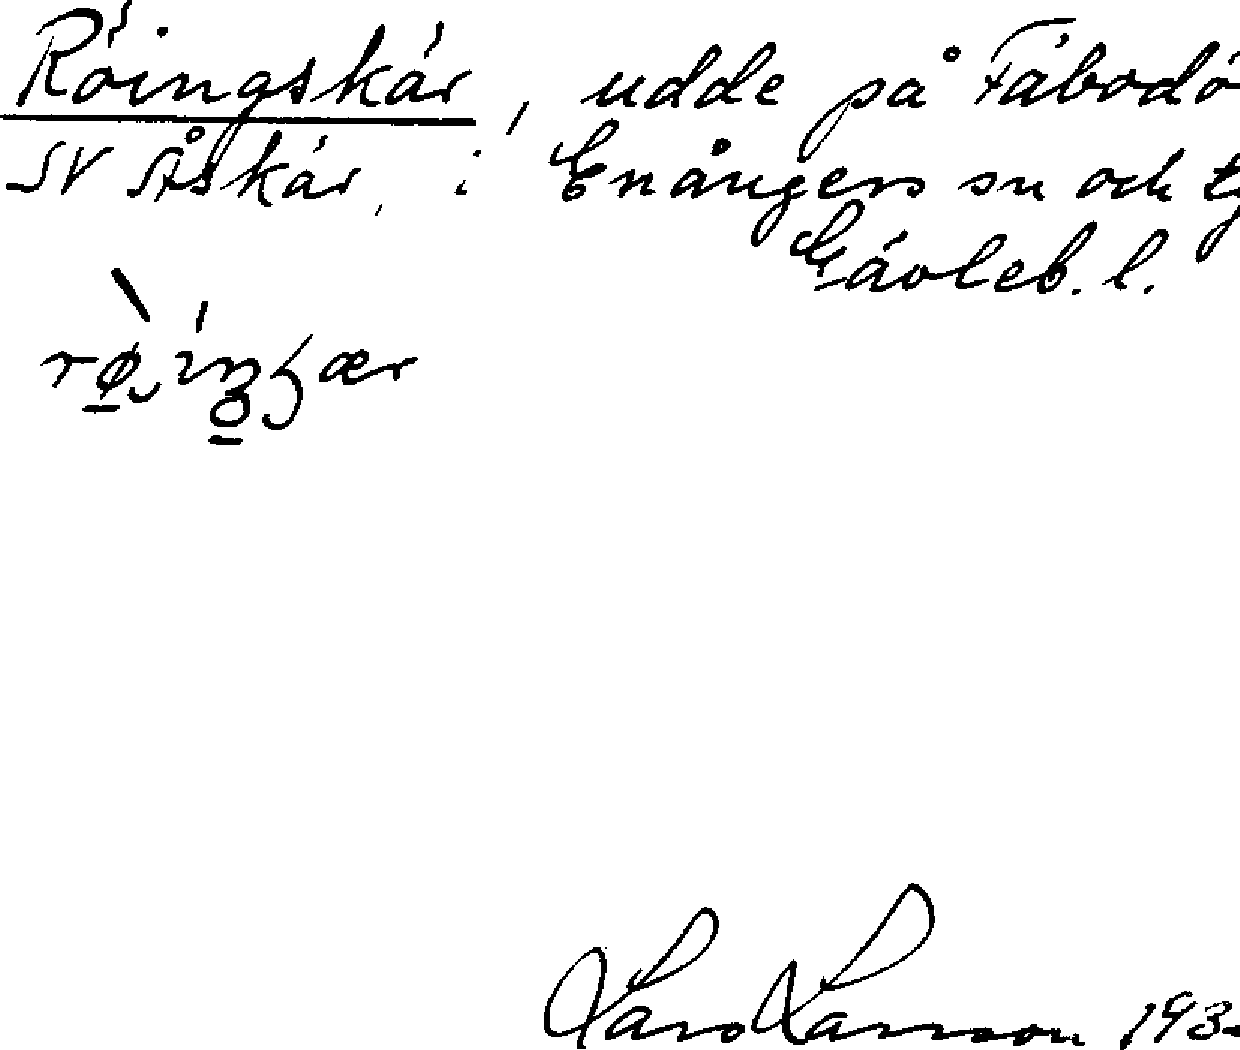 Röingskär, udde på Fäbodö
SV Åskär, i Enångers sn och
Gävleb. l.
Lars Larsson